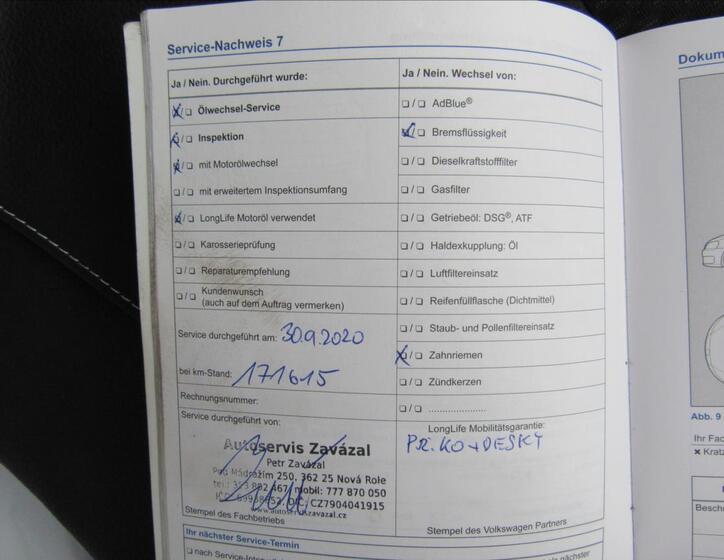 Service-Nachweis 7
Dokum
Ja / Nein. Durchgeführt wurde:
Ölwechsel-Service
Inspektion
mit Motorölwechsel
mit erweitertem Inspektionsumfang
LongLife Motoröl verwendet
Karosserieprüfung
Reparaturempfehlung
Kundenwunsch
(auch auf dem Auftrag vermerken)
Service durchgeführt am: 30.9.2020
bei km-Stand: 171615
Rechnungsnummer:
Service durchgeführt von:
Autoservis Zavázal
Petr Zavázal
Pod Nádražím 250, 362 25 Nová Role
mobil: 777 870 050
DIČ: CZ7904041915
Stempel des Fachbetriebs
Ihr nächster Service-Termin
Ja / Nein. Wechsel von:
AdBlue®
Bremsflüssigkeit
Dieselkraftstofffilter
Gasfilter
Getriebeöl: DSG®, ATF
Haldexkupplung: Öl
Luftfiltereinsatz
Reifenfüllflasche (Dichtmittel)
Staub- und Pollenfiltereinsatz
Zahnriemen
Zündkerzen
LongLife Mobilitätsgarantie:
Stempel des Volkswagen Partners
Abb. 9
Ihr Fac
Kratz
Besch